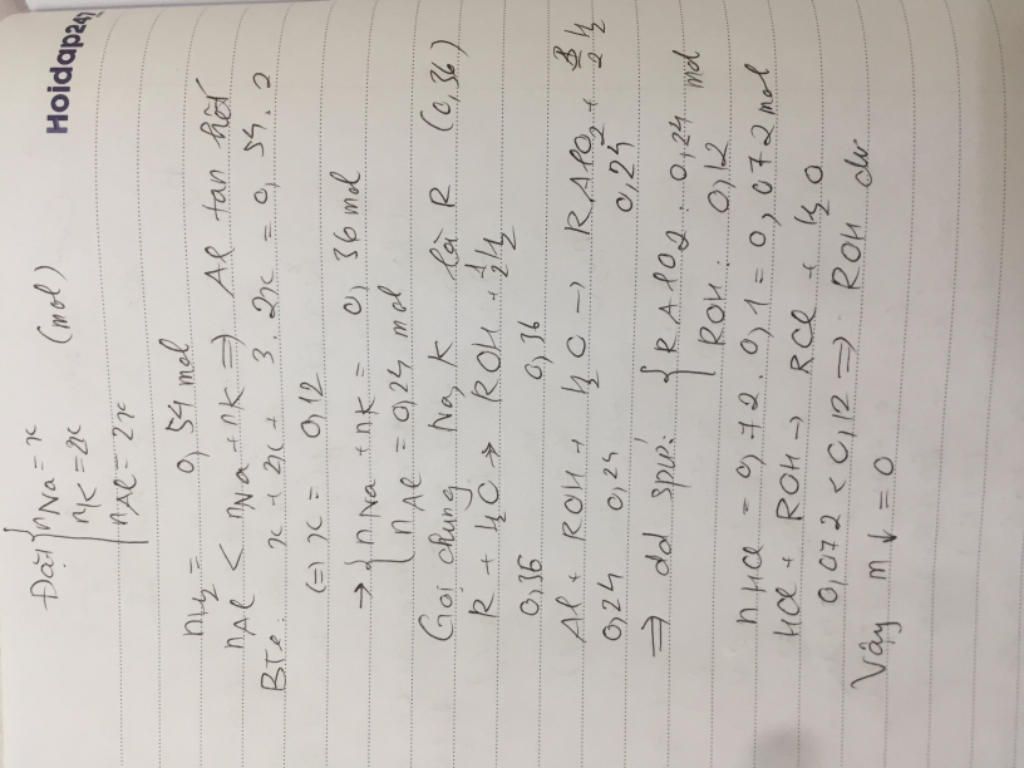 Hoidap247
Đặt { nNa = x
nK = 2x (mol)
nAl = 2x
nH2 = 0,54 mol
nAl < nNa + nK => Al tan hết
BTe: x + 2x + 3.2x = 0,54.2
(=) x = 0,12
→ { nNa + nK = 0,36 mol
nAl = 0,24 mol
Gọi chung Na, K là R (0,36)
R + H2O → ROH + 1/2 H2
0,36 0,36
Al + ROH + H2O → RAlO2 + 3/2 H2
0,24 0,24 0,24
=> dd spư: { RAlO2: 0,24 mol
ROH: 0,12
nHCl = 0,72.0,1 = 0,072 mol
HCl + ROH → RCl + H2O
0,072 < 0,12 => ROH dư
Vậy m↓ = 0